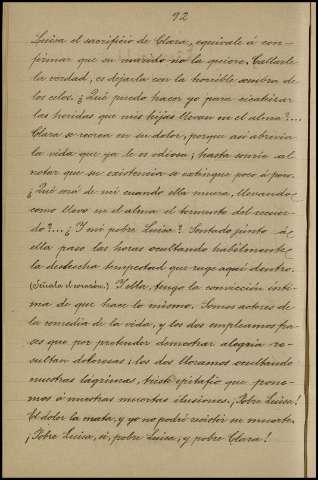 92
Luisa el sacrificio de Clara, equivale á con-
firmar que su marido no la quiere. Callarle
la verdad, es dejarla con la horrible sombra de
los celos. ¿Qué puedo hacer yo para cicatrizar
las heridas que mis hijas llevan en el alma?....
Clara se recrea en su dolor, porque así abrevia
la vida que ya le es odiosa; hasta sonrie al
notar que su existencia se extingue poco á poco.
¿Qué será de mi cuando ella muera, llevando
como llevo en el alma el tormento del recuer-
do?... ¿Y mi pobre Luisa? Sentado junto á
ella paso las horas ocultando habilmente
la deshecha tempestad que ruge aquí dentro.
(Señala el corazón.) Y ella, tengo la convicción ínti-
ma de que hace lo mismo. Somos actores de
la comedia de la vida, y los dos empleamos fra-
ses que por pretender demostrar alegria re-
sultan dolorosas; los dos lloramos ocultando
nuestras lágrimas, triste epitafio que pone-
mos á nuestras muertas ilusiones. ¡Pobre Luisa!
El dolor la mata, y yo no podré resistir su muerte.
¡Pobre Luisa, si, pobre Luisa, y pobre Clara!